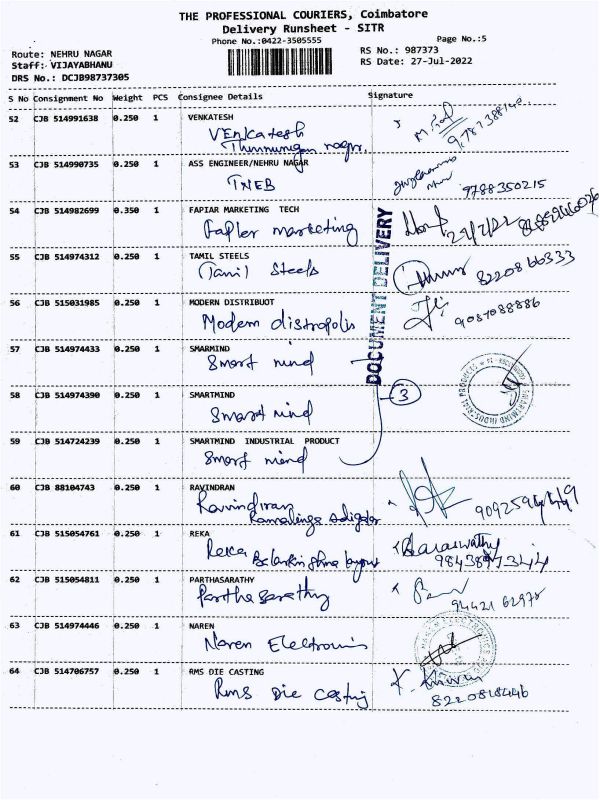 THE PROFESSIONAL COURIERS, Coimbatore
Delivery Runsheet - SITR
Phone No.:0422-3505555 Page No.:5
Route: NEHRU NAGAR RS No.: 987373
Staff: VIJAYABHANU RS Date: 27-Jul-2022
DRS No.: DCJB98737305
S No Consignment No Weight PCS Consignee Details Signature
52 CJB 514991638 0.250 1 VENKATESH
Venkatesh
53 CJB 514990735 0.250 1 ASS ENGINEER/NEHRU NAGAR
TNEB 9788350215
54 CJB 514982699 0.350 1 FAPIAR MARKETING TECH
Fapler marketing
DOCUMENT DELIVERY
55 CJB 514974312 0.250 1 TAMIL STEELS
Tamil Steels
56 CJB 515031985 0.250 1 MODERN DISTRIBUOT
Modern distropolis 9087088886
57 CJB 514974433 0.250 1 SMARMIND
Smart mind
58 CJB 514974390 0.250 1 SMARTMIND
Smart mind 3
59 CJB 514724239 0.250 1 SMARTMIND INDUSTRIAL PRODUCT
Smart mind
60 CJB 88104743 0.250 1 RAVINDRAN
Ravindiran
61 CJB 515054761 0.250 1 REKA
Reka Saraswathy
62 CJB 515054811 0.250 1 PARTHASARATHY
Parthasarathy 94421 62978
63 CJB 514974446 0.250 1 NAREN
Naren Electronics
64 CJB 514706757 0.250 1 RMS DIE CASTING
Rms Die casting 8220818446